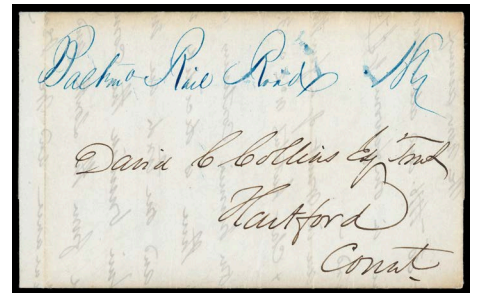 Baltmo Rail Road
David C Collins Esq
Hartford
Connt